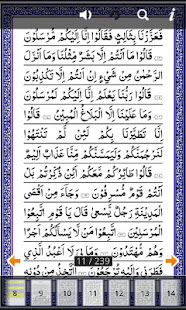 فَعَزَّزْنَا بِثَالِثٍ فَقَالُوا إِنَّا إِلَيْكُمْ مُرْسَلُونَ
قَالُوا مَا أَنْتُمْ إِلَّا بَشَرٌ مِثْلُنَا وَمَا أَنْزَلَ
الرَّحْمَنُ مِنْ شَيْءٍ إِنْ أَنْتُمْ إِلَّا تَكْذِبُونَ
قَالُوا رَبُّنَا يَعْلَمُ إِنَّا إِلَيْكُمْ لَمُرْسَلُونَ
وَمَا عَلَيْنَا إِلَّا الْبَلَاغُ الْمُبِينُ
قَالُوا إِنَّا تَطَيَّرْنَا بِكُمْ لَئِنْ لَمْ تَنْتَهُوا
لَنَرْجُمَنَّكُمْ وَلَيَمَسَّنَّكُمْ مِنَّا عَذَابٌ أَلِيمٌ
قَالُوا طَائِرُكُمْ مَعَكُمْ أَئِنْ ذُكِّرْتُمْ بَلْ
أَنْتُمْ قَوْمٌ مُسْرِفُونَ وَجَاءَ مِنْ أَقْصَى
الْمَدِينَةِ رَجُلٌ يَسْعَى قَالَ يَا قَوْمِ اتَّبِعُوا
الْمُرْسَلِينَ اتَّبِعُوا مَنْ لَا يَسْأَلُكُمْ أَجْرًا
وَهُمْ مُهْتَدُونَ وَمَا لِيَ لَا أَعْبُدُ الَّذِي
11 / 239
8 9 10 11 12 13 14